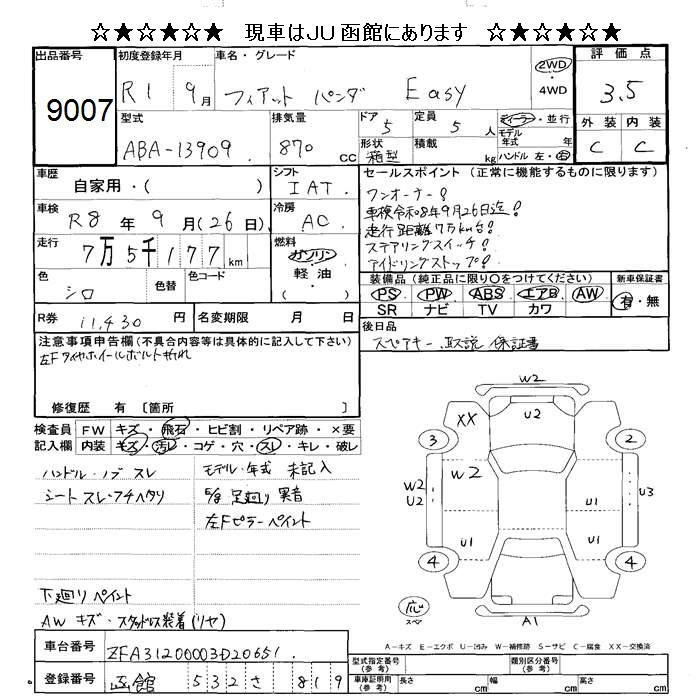 ☆★☆★☆★ 現車はJU函館にあります ☆★☆★☆★
出品番号 9007
初度登録年月 R1 9月
車名・グレード フィアット パンダ Easy
2WD ・ 4WD
評価点 3.5
型式 ABA-13909
排気量 870 CC
ドア 5
定員 5 人
形状 箱型
積載 kg
ディーラー・並行
モデル年式 年
ハンドル 左・右
外装 内装
C C
車歴 自家用・( )
シフト IAT
車検 R8年 9月(26日)
冷房 AC
走行 7万5千177km
燃料 ガソリン・軽油・
色 シロ
色替
色コード
R券 11,430 円
名変期限 月 日
セールスポイント (正常に機能するものに限ります)
ワンオーナー!
車検令和8年9月26日迄!
走行距離7万km台!
ステアリングスイッチ!
アイドリングストップ!
装備品(純正品に限り○をつけてください)
新車保証書
PS PW ABS エアB AW
SR ナビ TV カワ
有・無
後日品
スペアキー 取説 保証書
注意事項申告欄(不具合内容等は具体的に記入して下さい)
左Fタイヤホイールボルト折れ
修復歴 有 〔箇所 〕
検査員記入欄
FW キズ・飛石・ヒビ割・リペア跡・×要
内装 キズ・汚レ・コゲ・穴・スレ・キレ・破レ
ハンドル・ノブ スレ
シートスレ・フチヘタリ
モデル・年式 未記入
足廻り
左Fピラーペイント
下廻りペイント
AWキズ・スタッドレス装着(リヤ)
W2
XX U2
3 2
W2
W2
U2
U1
U3
U1
U1
4 4
応
スペ
A1
A-キズ E-エクボ U-凹み W-補修跡 S-サビ C-腐食 XX-交換済
車台番号 ZFA31200003D20651
登録番号 函館 532 さ 819
型式指定番号(参考)
類別区分番号(参考)
車庫証明用(参考) 長さ cm 幅 cm 高さ cm